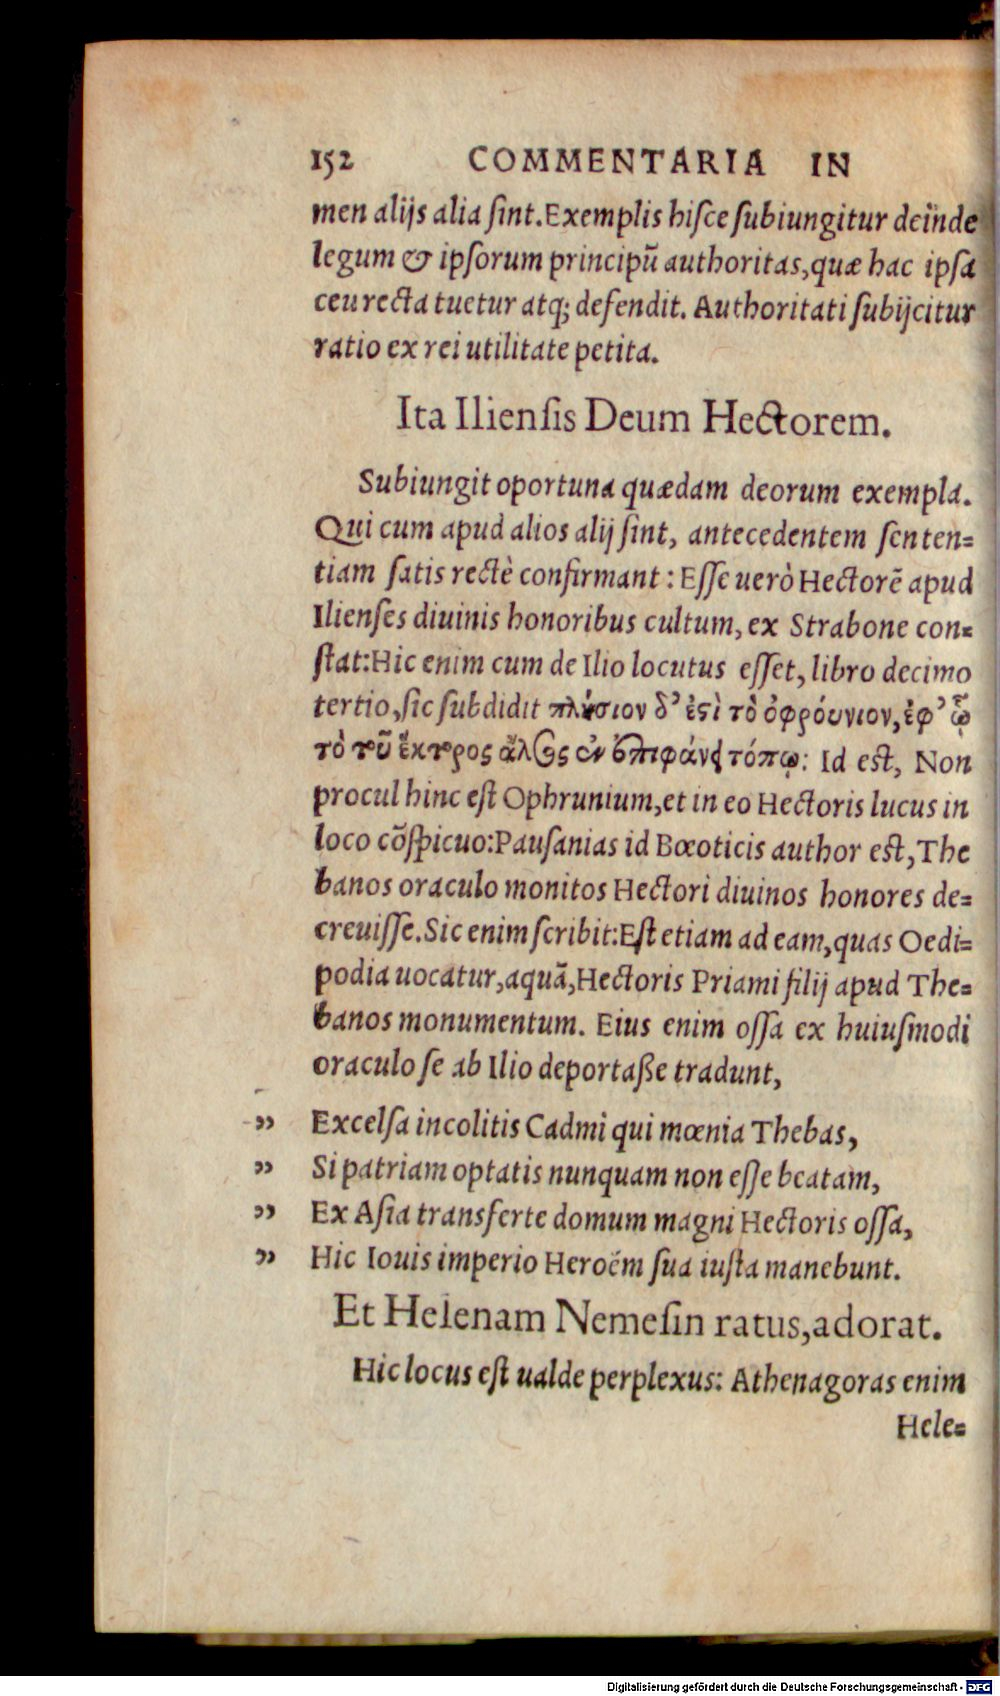 152 COMMENTARIA IN
men alijs alia ſint. Exemplis hiſce ſubiungitur deinde
legum & ipſorum principũ authoritas, quæ hac ipſa
ceu recta tuetur atq; defendit. Authoritati ſubijcitur
ratio ex rei utilitate petita.
Ita Ilienſis Deum Hectorem.
Subiungit oportuna quædam deorum exempla.
Qui cum apud alios alij ſint, antecedentem ſenten=
tiam ſatis rectè confirmant: Eſſe uerò Hectorẽ apud
Ilienſes diuinis honoribus cultum, ex Strabone con=
ſtat: Hic enim cum de Ilio locutus eſſet, libro decimo
tertio, ſic ſubdidit πλήσιον δ᾽ ἐϛὶ τὸ ὀφρόυνιον, ἐφ᾽ ᾧ
τὸ τοῦ ἕκτορος ἄλσος ἐν ἐπιφάνει τόπῳ: Id est, Non
procul hinc eſt Ophrunium, et in eo Hectoris lucus in
loco cõſpicuo: Pauſanias id Bœoticis author est, The
banos oraculo monitos Hectori diuinos honores de=
creuiſſe. Sic enim ſcribit: Eſt etiam ad eam, quas Oedi=
podia uocatur, aquã, Hectoris Priami filij apud The=
banos monumentum. Eius enim oſſa ex huiuſmodi
oraculo ſe ab Ilio deportaße tradunt,
” Excelſa incolitis Cadmi qui mœnia Thebas,
” Si patriam optatis nunquam non eſſe beatam,
” Ex Aſia transferte domum magni Hectoris oſſa,
” Hic Iouis imperio Heroëm ſua iuſta manebunt.
Et Helenam Nemeſin ratus, adorat.
Hic locus eſt ualde perplexus: Athenagoras enim
Hele=
Digitalisierung gefördert durch die Deutsche Forschungsgemeinschaft - DFG